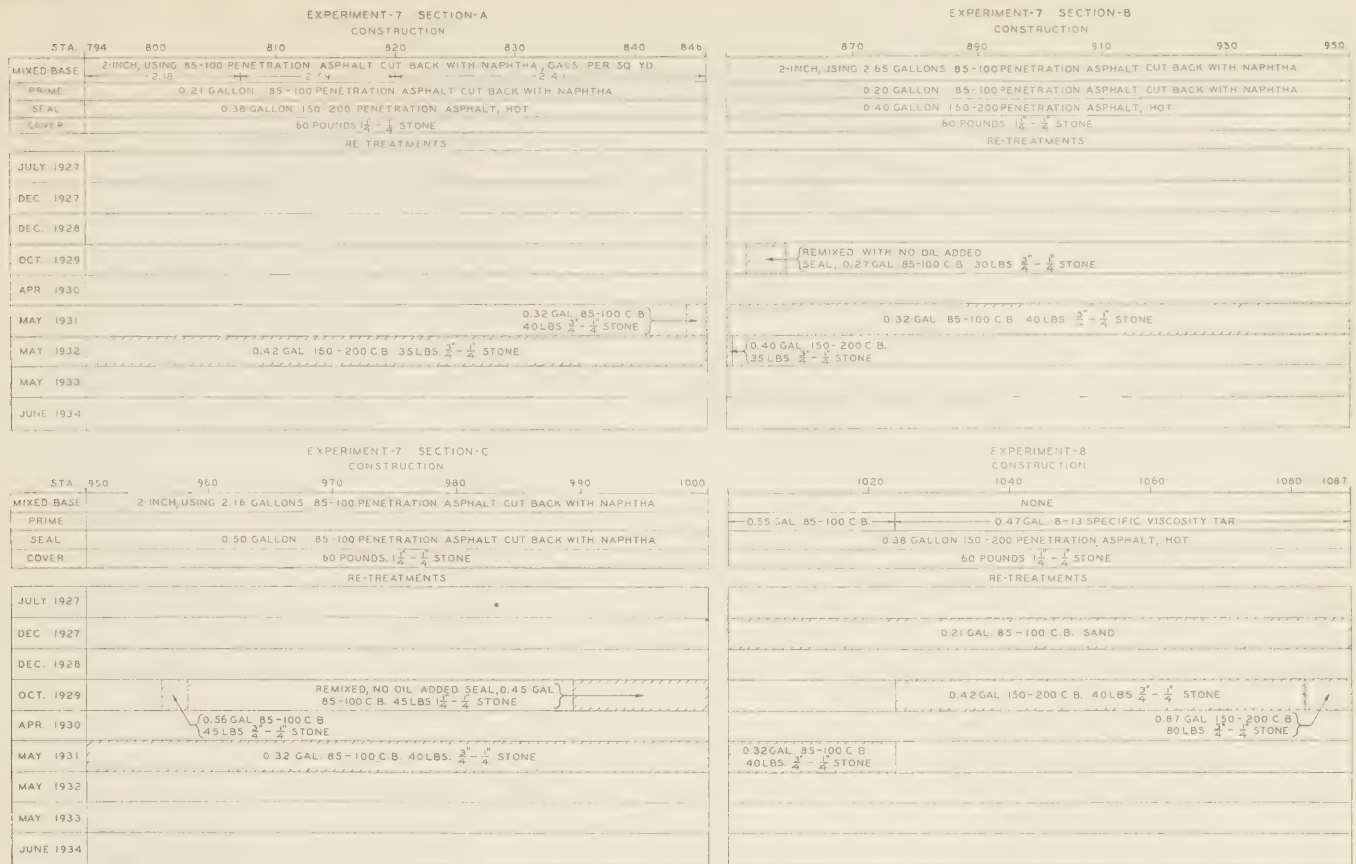 EXPERIMENT-7 SECTION-A
CONSTRUCTION
STA. 794 800 810 820 830 840 846
MIXED BASE 2-INCH, USING 85-100 PENETRATION ASPHALT CUT BACK WITH NAPHTHA, GALS. PER SQ YD.
2.18
PRIME 0.21 GALLON 85-100 PENETRATION ASPHALT CUT BACK WITH NAPHTHA
SEAL 0.38 GALLON 150-200 PENETRATION ASPHALT, HOT
COVER 60 POUNDS 1 1/4" - 1/4" STONE
RE-TREATMENTS
JULY 1927
DEC 1927
DEC. 1928
OCT. 1929
APR 1930
MAY 1931 0.32 GAL. 85-100 C B
40 LBS 3/4" - 1/4" STONE
MAY 1932 0.42 GAL 150-200 C B 35 LBS. 3/4" - 1/4" STONE
MAY 1933
JUNE 1934
EXPERIMENT-7 SECTION-B
CONSTRUCTION
870 890 910 930 950
2-INCH, USING 2 65 GALLONS 85-100 PENETRATION ASPHALT CUT BACK WITH NAPHTHA
0 20 GALLON 85-100 PENETRATION ASPHALT CUT BACK WITH NAPHTHA
0 40 GALLON 150-200 PENETRATION ASPHALT, HOT
60 POUNDS 1 1/4" - 1/4" STONE
RE-TREATMENTS
REMIXED WITH NO OIL ADDED
SEAL, 0.27 GAL 85-100 C.B 30 LBS 3/4" - 1/4" STONE
0.32 GAL 85-100 C B 40 LBS 3/4" - 1/4" STONE
0.40 GAL. 150-200 C B.
35 LBS. 3/4" - 1/4" STONE
EXPERIMENT-7 SECTION-C
CONSTRUCTION
STA 950 960 970 980 990 1000
MIXED BASE 2-INCH, USING 2.16 GALLONS 85-100 PENETRATION ASPHALT CUT BACK WITH NAPHTHA
PRIME
SEAL 0.50 GALLON 85-100 PENETRATION ASPHALT CUT BACK WITH NAPHTHA
COVER 60 POUNDS, 1 1/4" - 1/4" STONE
RE-TREATMENTS
JULY 1927
DEC 1927
DEC. 1928
OCT. 1929 REMIXED, NO OIL ADDED. SEAL, 0.45 GAL
85-100 C.B. 45 LBS 1 1/4" - 1/4" STONE
APR. 1930 0.56 GAL 85-100 C B.
45 LBS 3/4" - 1/4" STONE
MAY 1931 0 32 GAL. 85-100 C.B. 40 LBS. 3/4" - 1/4" STONE
MAY 1932
MAY 1933
JUNE 1934
EXPERIMENT-8
CONSTRUCTION
1020 1040 1060 1080 1087
NONE
0.55 GAL 85-100 C B. 0.47 GAL 8-13 SPECIFIC VISCOSITY TAR
0 38 GALLON 150-200 PENETRATION ASPHALT, HOT
60 POUNDS 1 1/4" - 1/4" STONE
RE-TREATMENTS
0.21 GAL. 85-100 C.B. SAND
0.42 GAL 150-200 C B. 40 LBS 3/4" - 1/4" STONE
0.87 GAL 150-200 C.B
80 LBS. 3/4" - 1/4" STONE
0.32 GAL 85-100 C B
40 LBS. 3/4" - 1/4" STONE